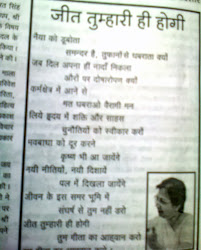 जीत तुम्हारी ही होगी
नैया को डूबोता
समन्दर है, तुफानोंसे घबराता क्यों
जब दिल अपना हीं नादाँ निकला
औरों पर दोषारोपण क्यों
कर्मक्षेत्र में आने से
मत घबराओ वैरागी मन
लिये हृदय में शक्ति और साहस
चुनौतियों को स्वीकार करों
भवबाधा को दूर करने
कृष्ण भी आ जायेंगे
नयी नीतियाँ, नयी दिशायें
पल में दिखला जायेंगे
जीवन के इस समर भूमि में
संघर्ष से तुम नहीं डरो
जीत तुम्हारी ही होगी
तुम गीता का आह्वान करो